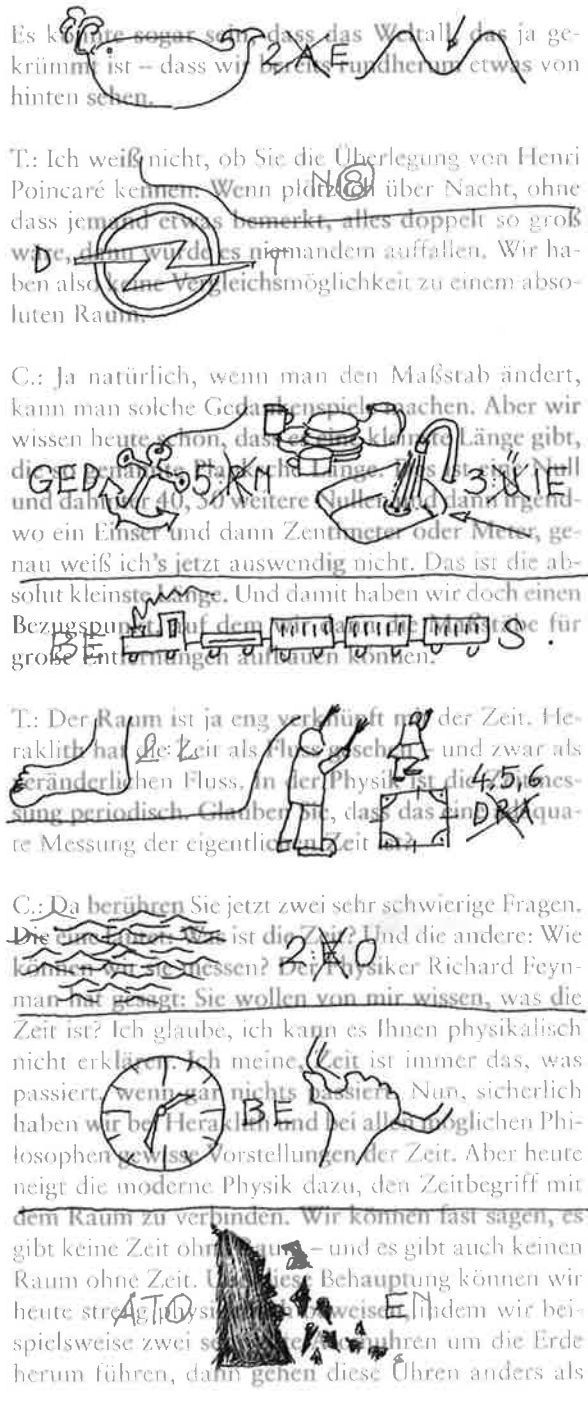 Es könnte sogar sein, dass das Weltall, das ja ge-
krümmt ist – dass wir bereits rundherum etwas von
2 A E
hinten sehen.
T.: Ich weiß nicht, ob Sie die Überlegung von Henri
N 8
Poincaré kennen. Wenn plötzlich über Nacht, ohne
dass jemand etwas bemerkt, alles doppelt so groß
wäre, dann würde es niemandem auffallen. Wir ha-
D T
ben also keine Vergleichsmöglichkeit zu einem abso-
luten Raum.
C.: Ja natürlich, wenn man den Maßstab ändert,
kann man solche Gedankenspiele machen. Aber wir
wissen heute schon, dass es eine kleinste Länge gibt,
die so genannte Planksche Länge. Das ist eine Null
GED 5:KM 3:Ü IE
und dahinter 40, 50 weitere Nullen und dann irgend-
wo ein Einser und dann Zentimeter oder Meter, ge-
nau weiß ich's jetzt auswendig nicht. Das ist die ab-
solut kleinste Länge. Und damit haben wir doch einen
Bezugspunkt, auf dem wir dann die Maßstäbe für
BE S.
große Entfernungen aufbauen können.
T.: Der Raum ist ja eng verknüpft mit der Zeit. He-
raklith hat die Zeit als Fluss gesehen – und zwar als
2:L
veränderlichen Fluss. In der Physik ist die Zeitmes-
4,5,6
sung periodisch. Glauben Sie, dass das eine adäqua-
DRX
te Messung der eigentlichen Zeit ist?
C.: Da berühren Sie jetzt zwei sehr schwierige Fragen.
Die eine lautet: Was ist die Zeit? Und die andere: Wie
2: O
können wir sie messen? Der Physiker Richard Feyn-
man hat gesagt: Sie wollen von mir wissen, was die
Zeit ist? Ich glaube, ich kann es Ihnen physikalisch
nicht erklären. Ich meine, Zeit ist immer das, was
passiert, wenn gar nichts passiert. Nun, sicherlich
BE
haben wir bei Heraklith und bei allen möglichen Phi-
losophen gewisse Vorstellungen der Zeit. Aber heute
neigt die moderne Physik dazu, den Zeitbegriff mit
dem Raum zu verbinden. Wir können fast sagen, es
gibt keine Zeit ohne Raum – und es gibt auch keinen
Raum ohne Zeit. Und diese Behauptung können wir
heute streng physikalisch beweisen, indem wir bei-
ATO EN
spielsweise zwei um die Erde
herum führen, dann gehen diese Uhren anders als